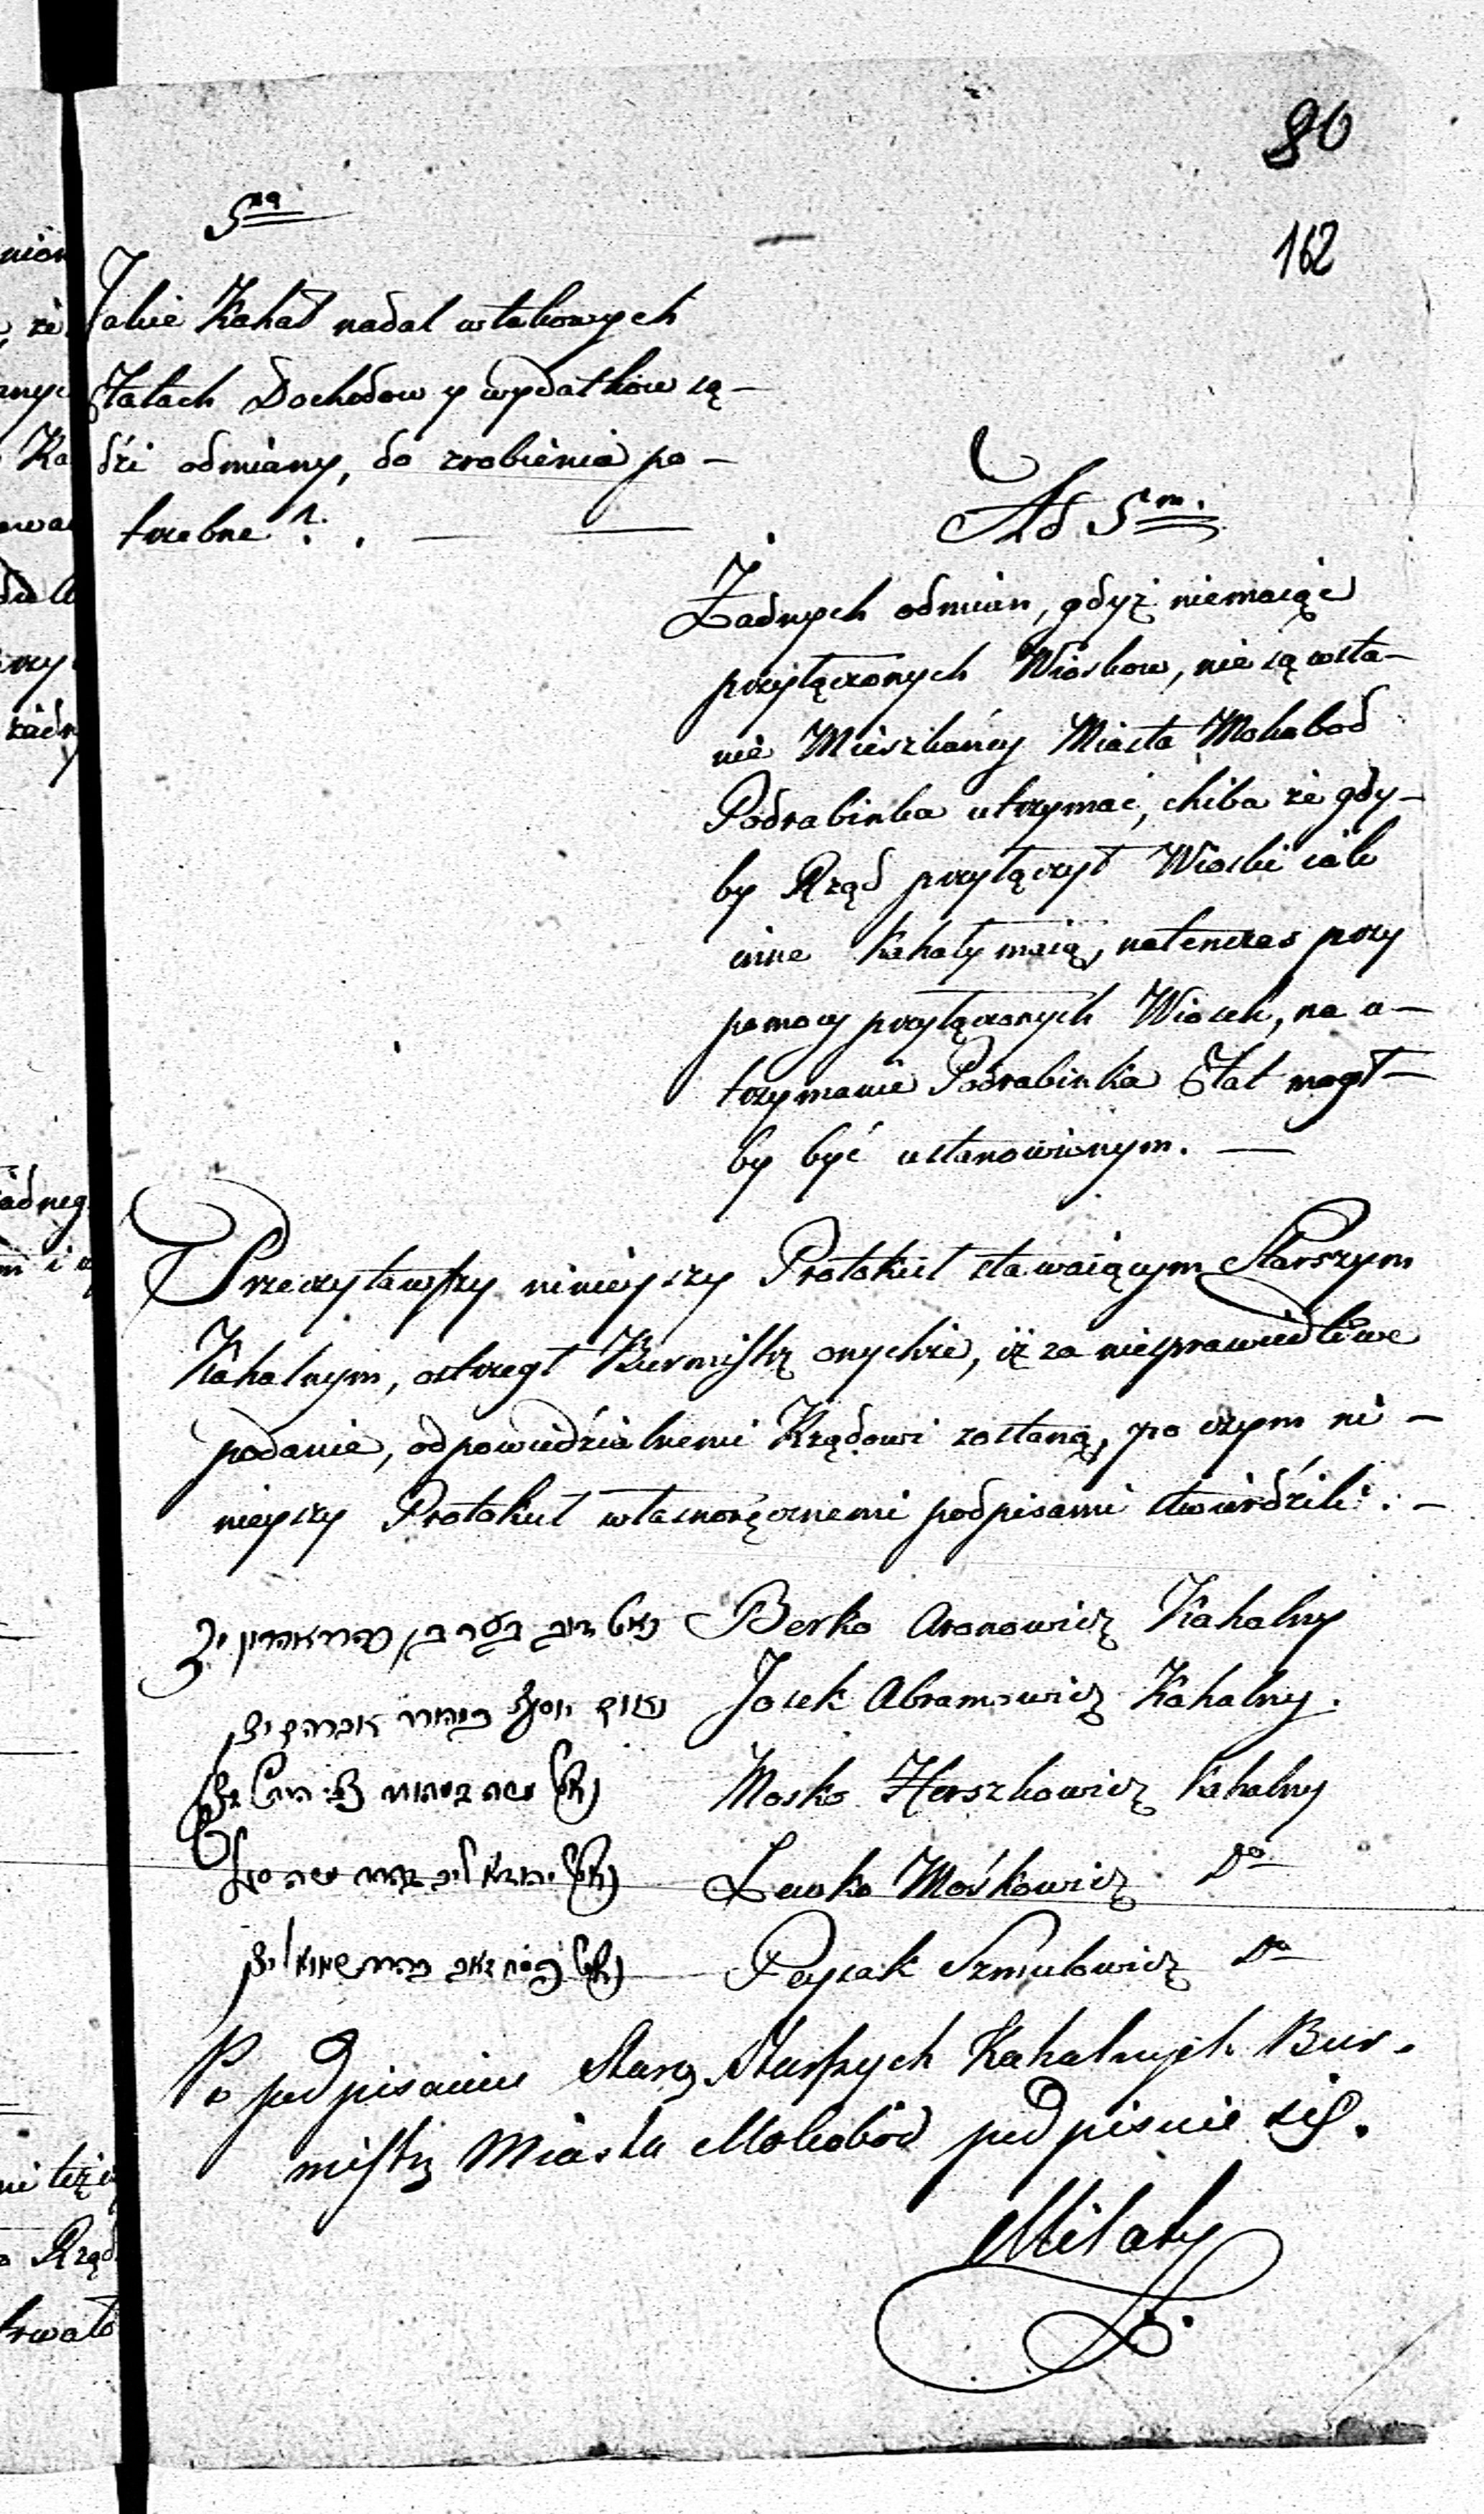 80
162
5na
Jakie Kahał nadal w takowych
Etatach Dochodow y wydatków są-
dźi odmiany, do zrobienia po-
trzebne?.
Ad 5m.
Żadnych odmian, gdyż niemaiąc
przyłączonych Wiosków, nie są wsta-
nie Mieszkańcy Miasta Mokobod
Podrabinka utrzymać, chiba że gdy-
by Rząd przyłączył Wioski iak
inne Kahały maią, natenczas przy
pomocy przyłączonych Wiosek, na u-
trzymanie Podrabinka Etat mogł-
by być ustanowionym.
Przeczytawszy ninieyszy Protokuł stawaiącym Starszym
Kahalnym, ostrzegł Burmistrz onychże, iż za niesprawiedliwe
podanie, odpowiedźialnemi Rządowi zostaną, po czym ni-
nieyszy Protokuł własnoręcznemi podpisami stwierdźili.
Berko Aronowicz Kahalny
Josek Abramowicz Kahalny.
נאם משה במהור צבי הירש
Mosko Herszkowicz Kahalny
נאם יהודא ליב במהור משה
Lewko Mośkowicz Do
Peysak Szmulowicz Do
Po podpisaniu Starszych Kahalnych Bur-
mistrz Miasta Mokobód podpisuie się.